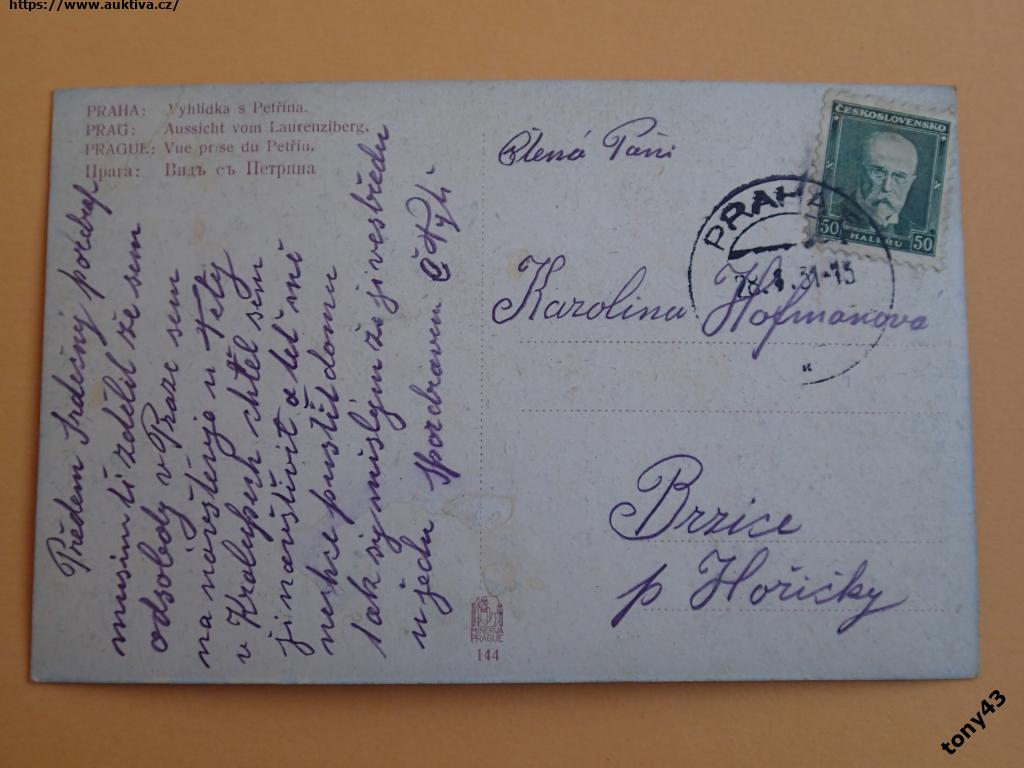 https://www.auktiva.cz/
PRAHA: Vyhlídka s Petřína.
PRAG: Aussicht vom Laurenziberg.
PRAGUE: Vue prise du Petřín.
Прага: Видъ съ Петрина
Předem Srdečný pozdraf
musím ti zdělit že sem
odsobody v Praze sem
na navoštěvje u tety
v Kralupech chtěl sem
ji navštívit a teť mě
neskce pustit domu
tak si myslým že ji ve středu
ujedu Spozdravem
Ctená Paní
Karolina Hofmanova
Brzice
p Hořičky
ČESKOSLOVENSKO
50 HALÉŘŮ 50
PRAHA
31-15
MINERVA
PRAGUE
144
tony43